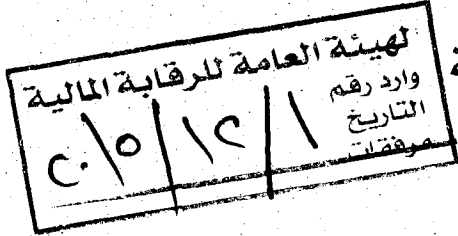 لهيئة العامة للرقابة المالية
وارد رقم
التاريخ ٢٠١٥/١٢/١
مرفقات